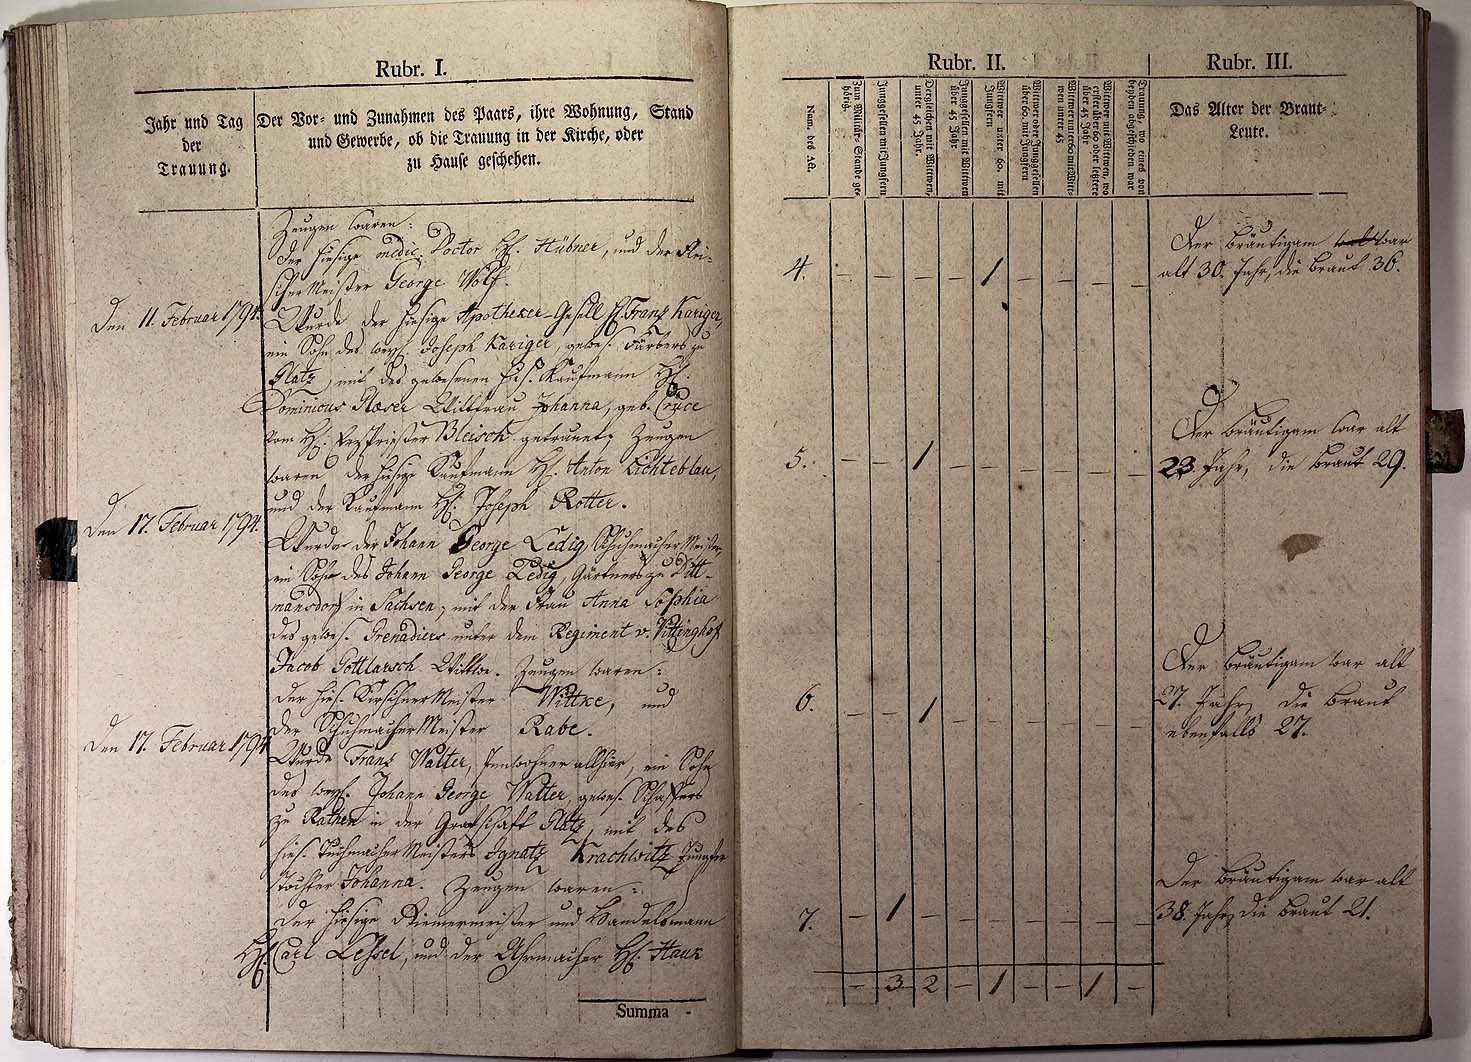 Rubr. I.
Jahr und Tag
der
Trauung.
Der Vor- und Zunahmen des Paars, ihre Wohnung, Stand
und Gewerbe, ob die Trauung in der Kirche, oder
zu Hause geschehen.
Zeugen waren:
der hiesige medic. Doctor H. Hübner, und der Flei-
scher Meister George Wolf.
Den 11. Februar 1794.
Wurde der hiesige Apotheker-Gesell H. Franz Kariger,
ein Sohn des weyl. Joseph Kariger, gewes. Färbers zu
Glatz, mit des gewesenen hies. Kaufmann H.
Dominicus Glaser Wittfrau Johanna, geb. Cruce
vom H. Erzpriester Bleisch getraut. Zeugen
waren der hiesige Kaufmann H. Anton Lichteblau,
und der Kaufmann H. Joseph Rotter.
Den 17. Februar 1794.
Wurde der Johann George Ledig, Schuhmacher Meister,
ein Sohn des Johann George Ledig, Gärtners zu Ditt-
mansdorf in Sachsen, mit der Frau Anna Sophia
des gewes. Grenadiers unter dem Regiment v. Vittinghof
Jacob Gottlarsch Wittwe. Zeugen waren:
der hies. Kirschner Meister Wittke, und
der Schuhmacher Meister Rabe.
Den 17. Februar 1794
Wurde Franz Walter, Innwohner allhier, ein Sohn
des weyl. Johann George Walter, gewes. Schaffers
zu Rathen in der Grafschaft Glatz, mit des
hies. Tuchmacher Meisters Ignatz Krachwitz Jungfer
Tochter Johanna. Zeugen waren:
der hiesige Riemermeister und Handelsmann
H. Carl Lessel, und der Uhrmacher H. Hauk
Summa -
Rubr. II.
Num. des Act.
Zum Militär-Stande ge-
hörig.
Junggesellen mit Jungfern
Dergleichen mit Wittwen,
unter 45 Jahr.
Junggesellen mit Wittwen
über 45 Jahr
Wittwer unter 60. mit
Jungfern
Wittwer oder Junggesellen
über 60. mit Jungfern
Wittwer unter 60 mit Witt-
wen unter 45
Wittwer mit Wittwen, wo
erster über 60 oder letztere
über 45 Jahr
Trauung, wo eines von
beyden abgeschieden war
4. – – – – 1 – – – –
5. – – 1 – – – – – –
6. – – 1 – – – – – –
7. – 1 – – – – – – –
– 3 2 – 1 – – 1 –
Rubr. III.
Das Alter der Braut-
Leute.
Der Bräutigam war
alt 30. Jahr, die Braut 36.
Der Bräutigam war alt
23. Jahr, die Braut 29.
Der Bräutigam war alt
27. Jahr, die Braut
ebenfalls 27.
Der Bräutigam war alt
38. Jahr, die Braut 21.